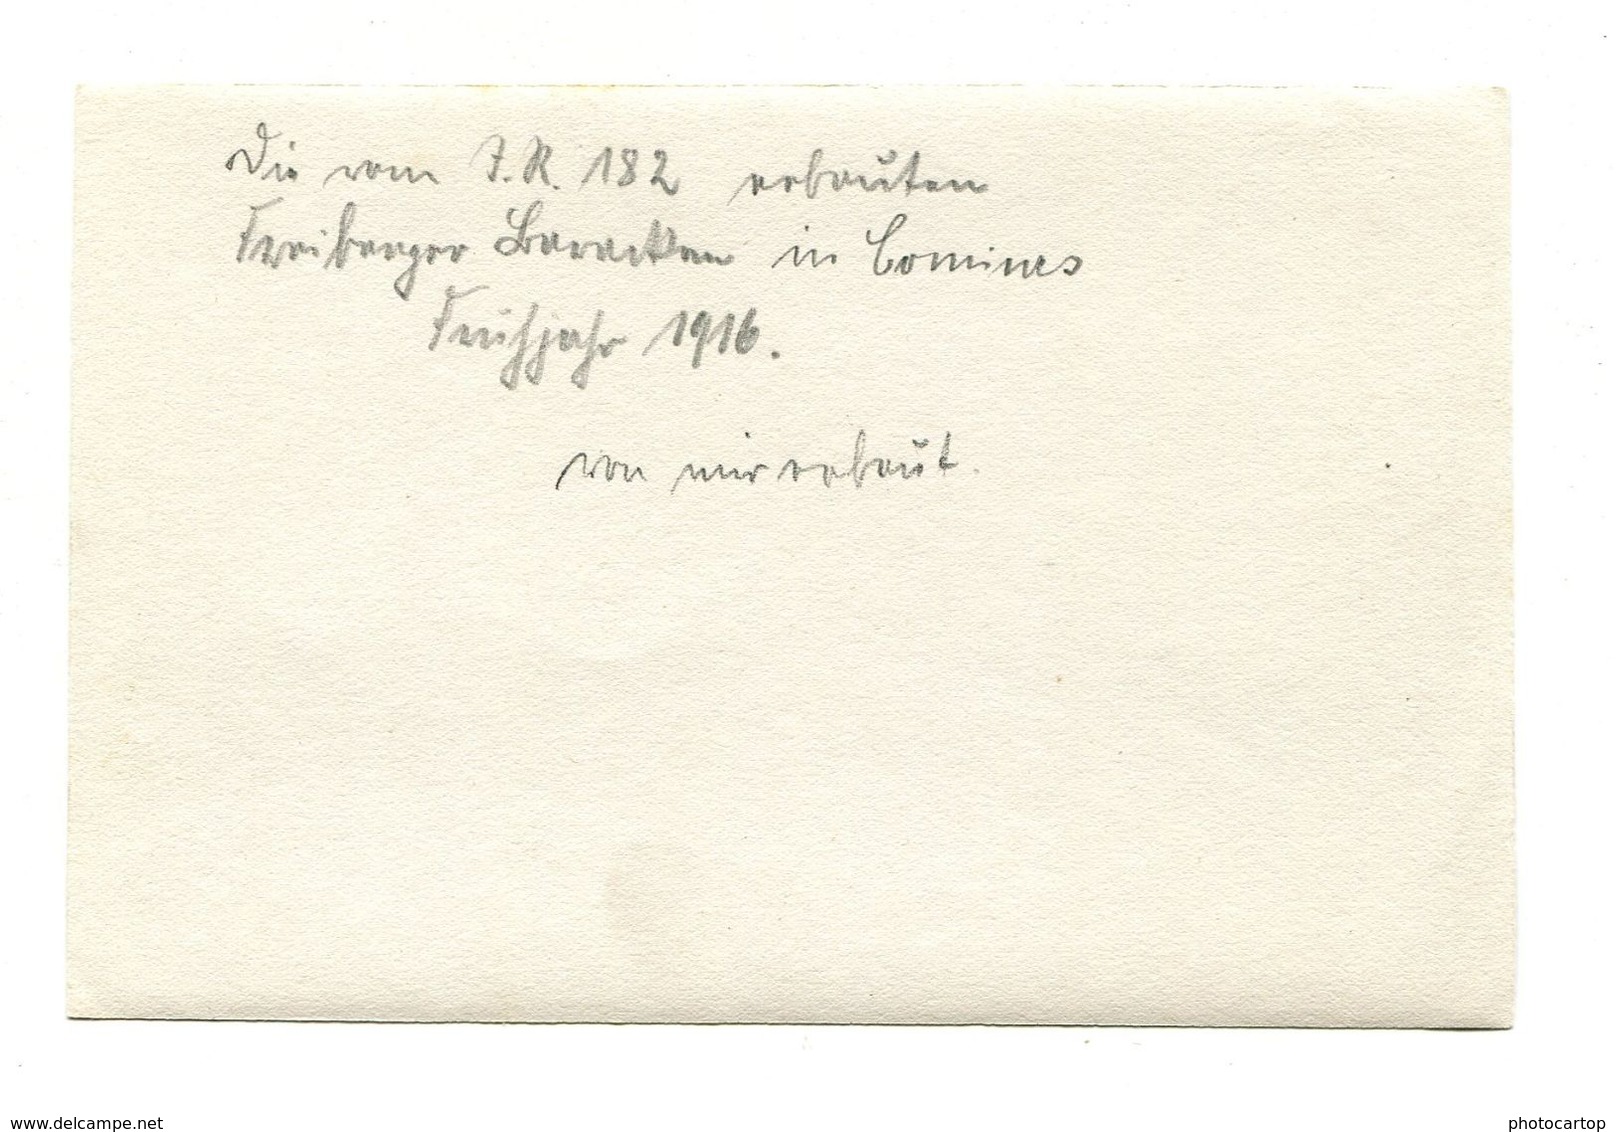 Die vom I.R. 182 erbauten
Freiberger Baracken in Comines
Frühjahr 1916.
von mir erbaut.
www.delcampe.net
photocartop